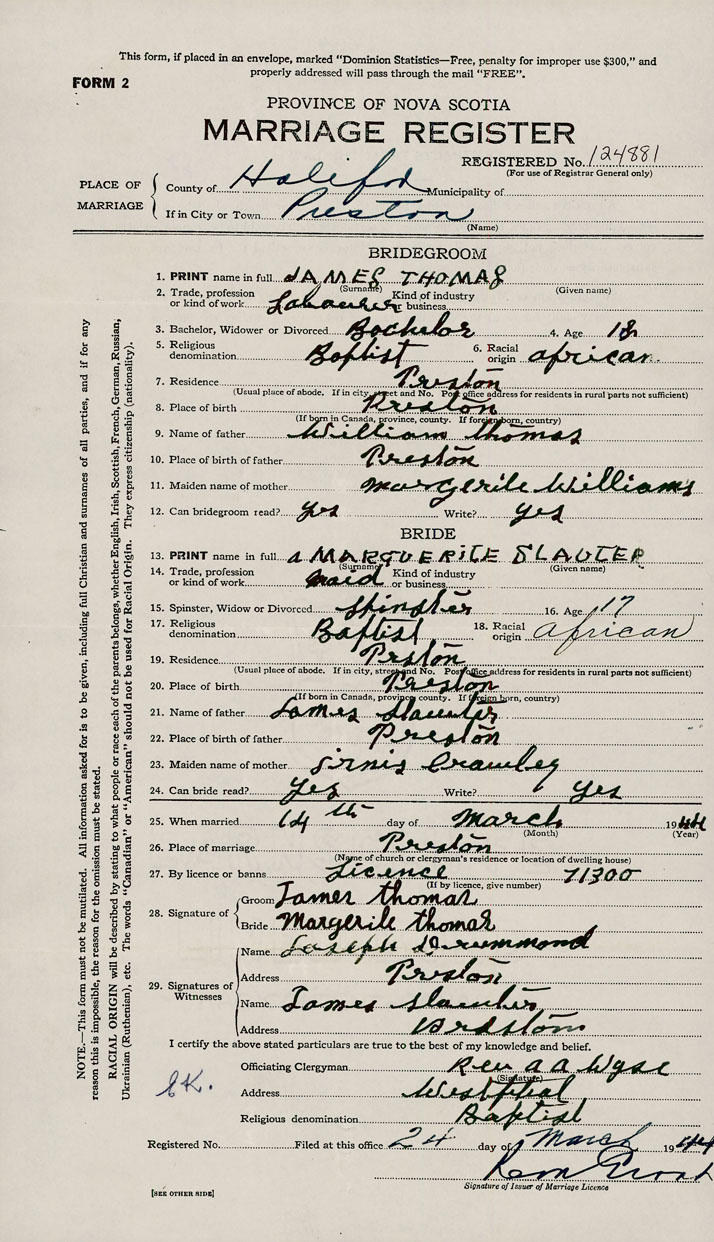 This form, if placed in an envelope, marked "Dominion Statistics—Free, penalty for improper use $300," and
properly addressed will pass through the mail "FREE".
FORM 2
PROVINCE OF NOVA SCOTIA
MARRIAGE REGISTER
REGISTERED No. 124881
(For use of Registrar General only)
PLACE OF MARRIAGE
County of Halifax Municipality of
If in City or Town Preston
(Name)
BRIDEGROOM
1. PRINT name in full JAMES THOMAS
(Surname) (Given name)
2. Trade, profession or kind of work Labourer Kind of industry or business
3. Bachelor, Widower or Divorced Bachelor 4. Age 18
5. Religious denomination Baptist 6. Racial origin african
7. Residence Preston
(Usual place of abode. If in city, street and No. Post office address for residents in rural parts not sufficient)
8. Place of birth Preston
(If born in Canada, province, county. If foreign born, country)
9. Name of father William thomas
10. Place of birth of father Preston
11. Maiden name of mother Margerile Williams
12. Can bridegroom read? yes Write? yes
BRIDE
13. PRINT name in full a MARQUERITE SLAUTER
(Surname) (Given name)
14. Trade, profession or kind of work maid Kind of industry or business
15. Spinster, Widow or Divorced Spinster 16. Age 17
17. Religious denomination Baptist 18. Racial origin african
19. Residence Preston
(Usual place of abode. If in city, street and No. Post office address for residents in rural parts not sufficient)
20. Place of birth Preston
(If born in Canada, province, county. If foreign born, country)
21. Name of father James Slauter
22. Place of birth of father Preston
23. Maiden name of mother Crawley
24. Can bride read? Yes Write? Yes
25. When married 14th day of March 1944
(Month) (Year)
26. Place of marriage Preston
(Name of church or clergyman's residence or location of dwelling house)
27. By licence or banns Licence 71300
(If by licence, give number)
28. Signature of
Groom James thomas
Bride Margerile thomas
29. Signatures of Witnesses
Name Joseph Drummond
Address Preston
Name James Slauter
Address
I certify the above stated particulars are true to the best of my knowledge and belief.
Officiating Clergyman Rev a a Wyse
(Signature)
Address Westphal
Religious denomination Baptist
EK.
Registered No. Filed at this office 24 day of March 1944
Signature of Issuer of Marriage Licence
[SEE OTHER SIDE]
NOTE.—This form must not be mutilated. All information asked for is to be given, including full Christian and surnames of all parties, and if for any
reason this is impossible, the reason for the omission must be stated.
RACIAL ORIGIN will be described by stating to what people or race each of the parents belongs, whether English, Irish, Scottish, French, German, Russian,
Ukrainian (Ruthenian), etc. The words "Canadian" or "American" should not be used for Racial Origin. They express citizenship (nationality).